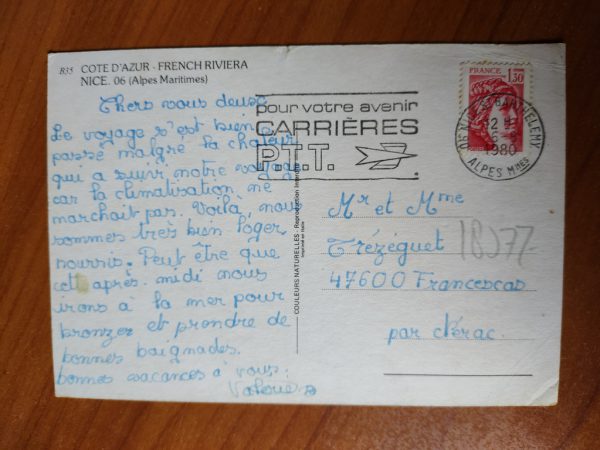 B35 COTE D'AZUR - FRENCH RIVIERA
NICE. 06 (Alpes Maritimes)
Chers vous deux
Le voyage s'est bien
passé malgré la chaleur
qui a suivi notre
car la climatisation ne
marchait pas. Voilà, nous
sommes très bien loger
nourris. Peut être que
cet après-midi nous
irons à la mer pour
bronzer et prendre de
bonnes baignades.
bonnes vacances à vous.
Valérie
COULEURS NATURELLES - Reproduction interdite
Imprimé en Italie
pour votre avenir
CARRIÈRES
P.T.T.
FRANCE 1,30
12 H
6 - 8
1980
ALPES Mmes
Mr et Mme
Trézéguet
47600 Francescas
par Nérac.
18377